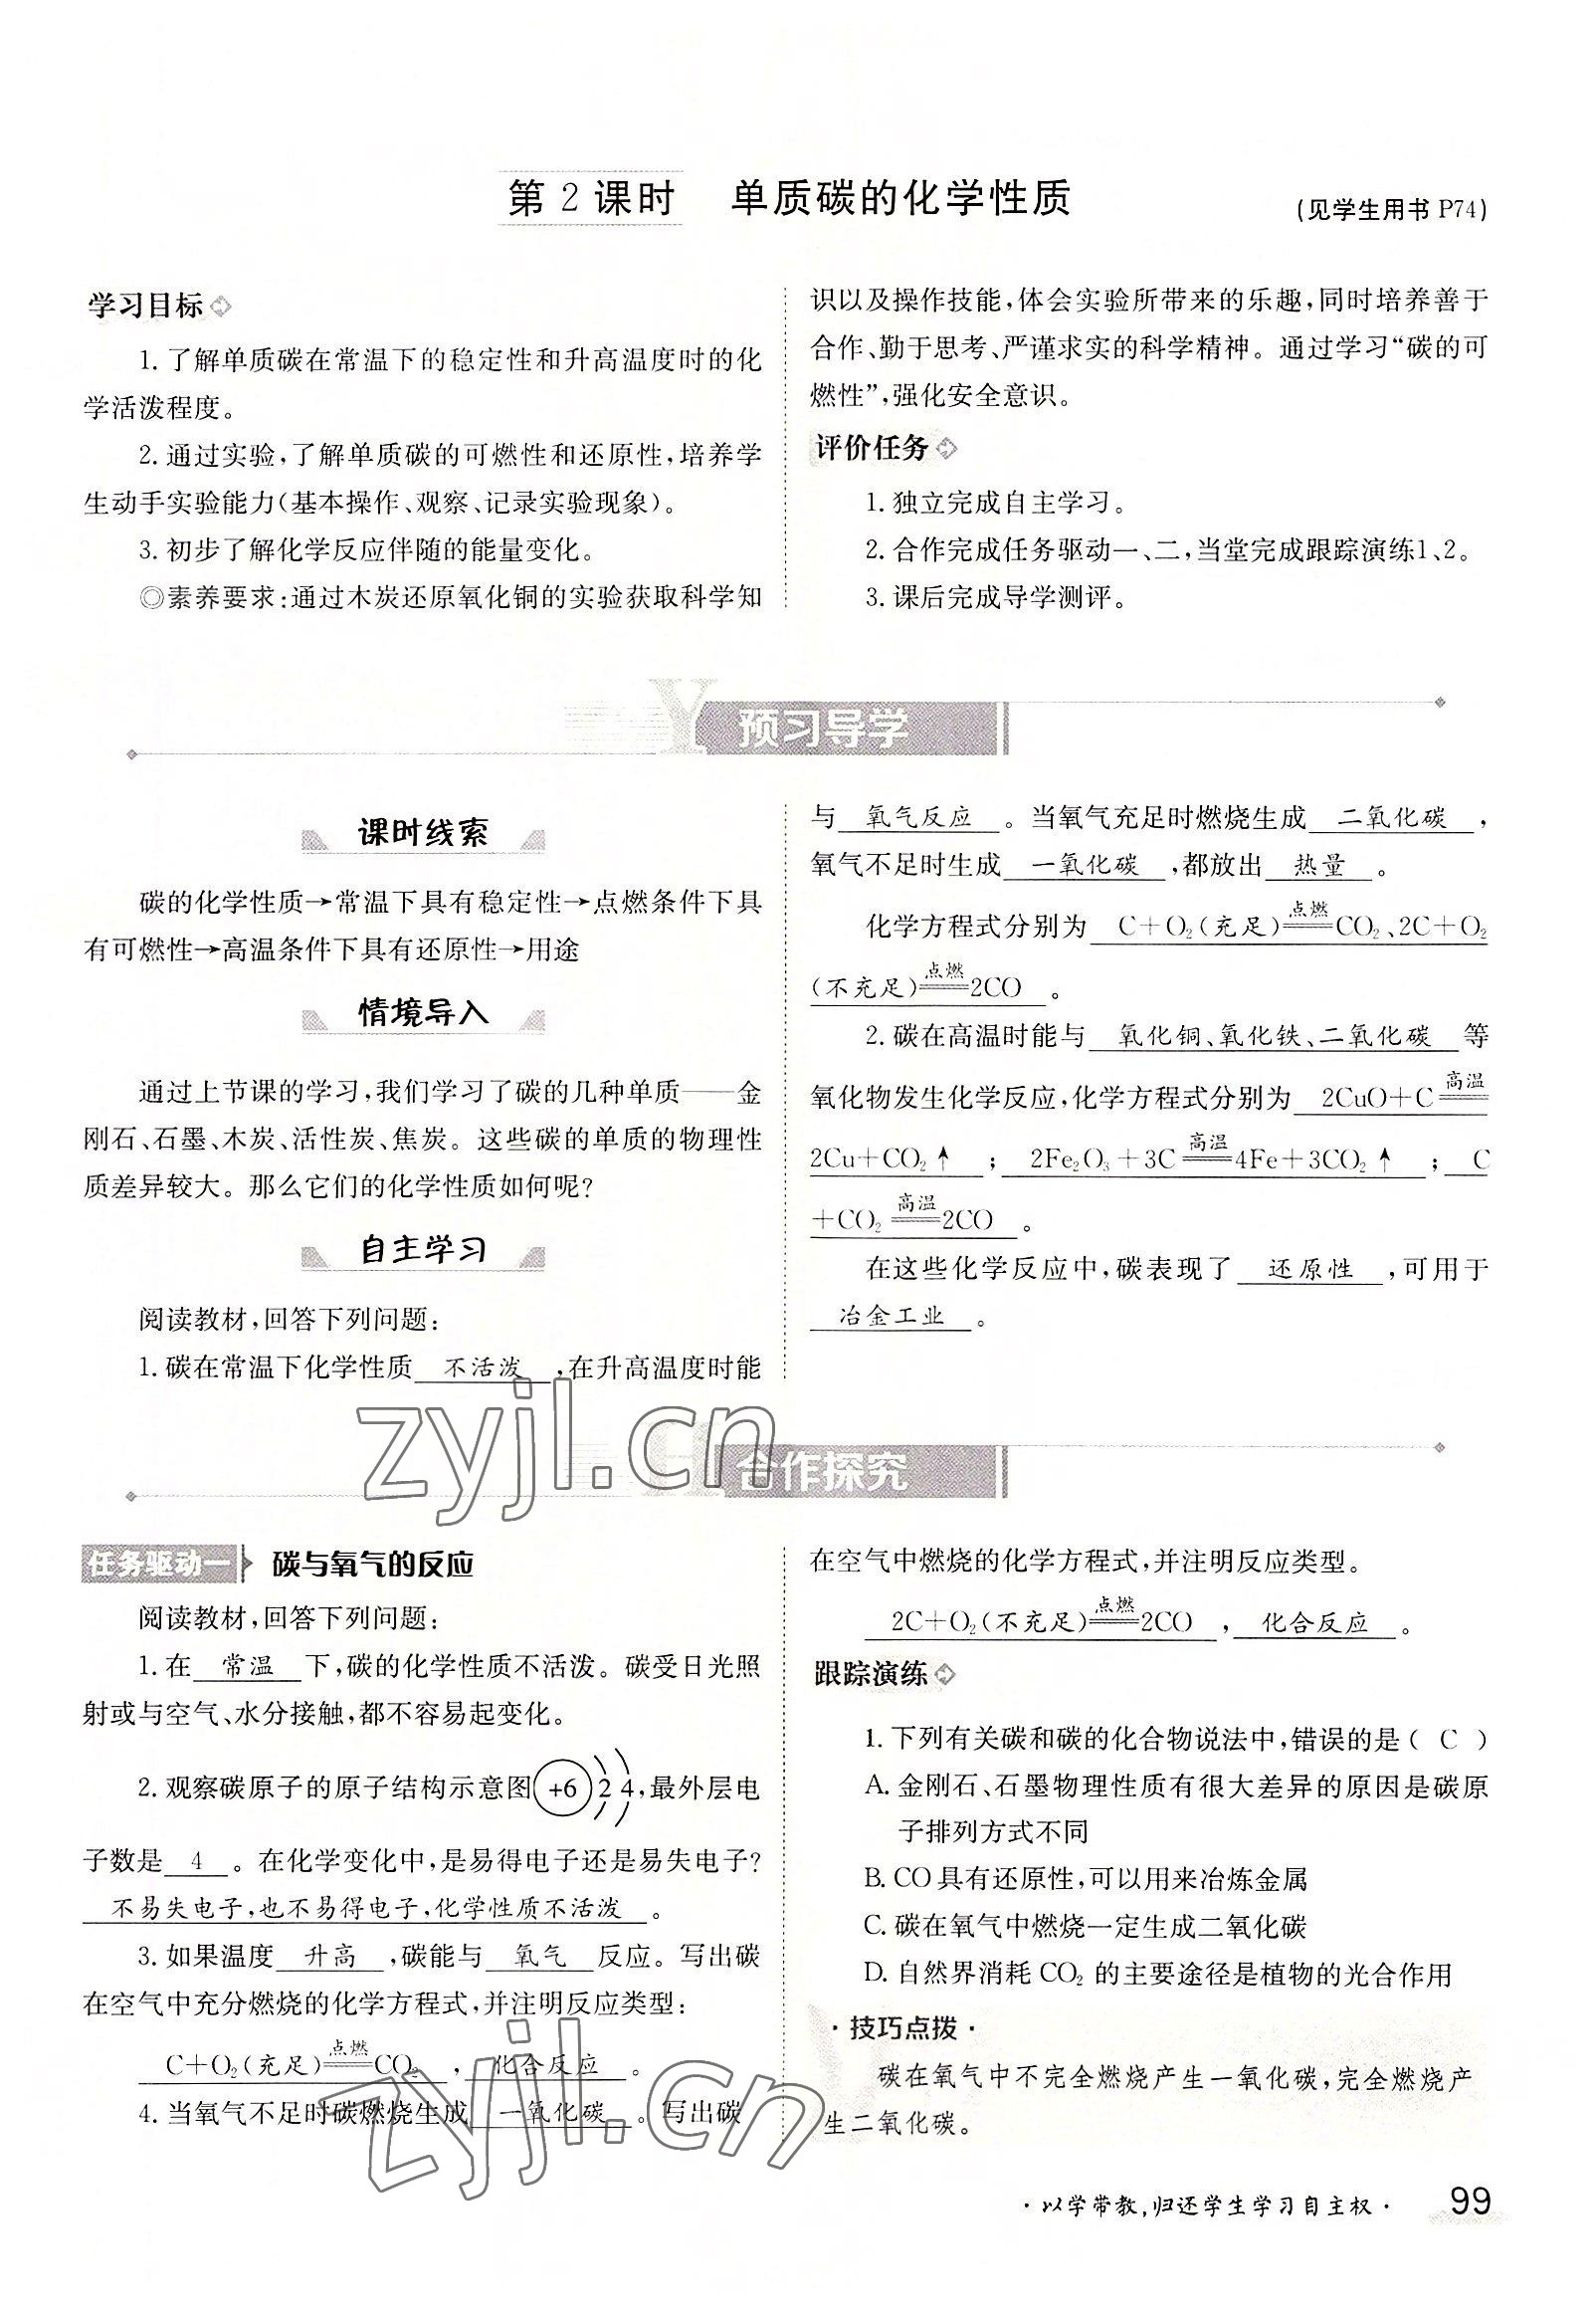 第2课时 单质碳的化学性质
(见学生用书 P74)
学习目标
1. 了解单质碳在常温下的稳定性和升高温度时的化
学活泼程度。
2. 通过实验,了解单质碳的可燃性和还原性,培养学
生动手实验能力(基本操作、观察、记录实验现象)。
3. 初步了解化学反应伴随的能量变化。
◎素养要求:通过木炭还原氧化铜的实验获取科学知
识以及操作技能,体会实验所带来的乐趣,同时培养善于
合作、勤于思考、严谨求实的科学精神。通过学习“碳的可
燃性”,强化安全意识。
评价任务
1. 独立完成自主学习。
2. 合作完成任务驱动一、二,当堂完成跟踪演练1、2。
3. 课后完成导学测评。
预习导学
课时线索
碳的化学性质→常温下具有稳定性→点燃条件下具
有可燃性→高温条件下具有还原性→用途
情境导入
通过上节课的学习,我们学习了碳的几种单质——金
刚石、石墨、木炭、活性炭、焦炭。这些碳的单质的物理性
质差异较大。那么它们的化学性质如何呢?
自主学习
阅读教材,回答下列问题:
1. 碳在常温下化学性质 不活泼 ,在升高温度时能
与 氧气反应 。当氧气充足时燃烧生成 二氧化碳 ,
氧气不足时生成 一氧化碳 ,都放出 热量 。
化学方程式分别为 C+O₂(充足)点燃══CO₂、2C+O₂
(不充足)点燃══2CO 。
2. 碳在高温时能与 氧化铜、氧化铁、二氧化碳 等
氧化物发生化学反应,化学方程式分别为 2CuO+C高温══
2Cu+CO₂↑ ; 2Fe₂O₃+3C高温══4Fe+3CO₂↑ ; C
+CO₂高温══2CO 。
在这些化学反应中,碳表现了 还原性 ,可用于
冶金工业 。
zyjl.cn
合作探究
任务驱动一 碳与氧气的反应
阅读教材,回答下列问题:
1. 在 常温 下,碳的化学性质不活泼。碳受日光照
射或与空气、水分接触,都不容易起变化。
2. 观察碳原子的原子结构示意图 +6 2 4 ,最外层电
子数是 4 。在化学变化中,是易得电子还是易失电子?
不易失电子,也不易得电子,化学性质不活泼 。
3. 如果温度 升高 ,碳能与 氧气 反应。写出碳
在空气中充分燃烧的化学方程式,并注明反应类型:
C+O₂(充足)点燃══CO₂ , 化合反应 。
4. 当氧气不足时碳燃烧生成 一氧化碳 。写出碳
zyjl.cn
在空气中燃烧的化学方程式,并注明反应类型。
2C+O₂(不充足)点燃══2CO , 化合反应 。
跟踪演练
1. 下列有关碳和碳的化合物说法中,错误的是( C )
A. 金刚石、石墨物理性质有很大差异的原因是碳原
子排列方式不同
B. CO 具有还原性,可以用来冶炼金属
C. 碳在氧气中燃烧一定生成二氧化碳
D. 自然界消耗 CO₂ 的主要途径是植物的光合作用
·技巧点拨·
碳在氧气中不完全燃烧产生一氧化碳,完全燃烧产
生二氧化碳。
·以学带教,归还学生学习自主权· 99